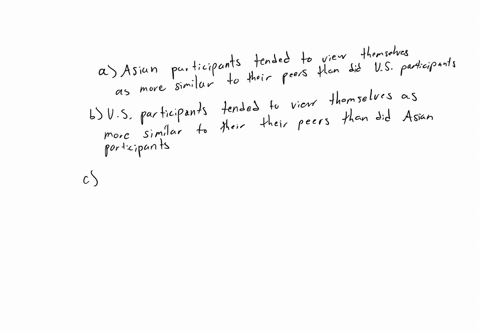 a) Asian participants tended to view themselves
as more similar to their peers than did U.S. participants
b) U.S. participants tended to view themselves as
more similar to their their peers than did Asian
participants
c)